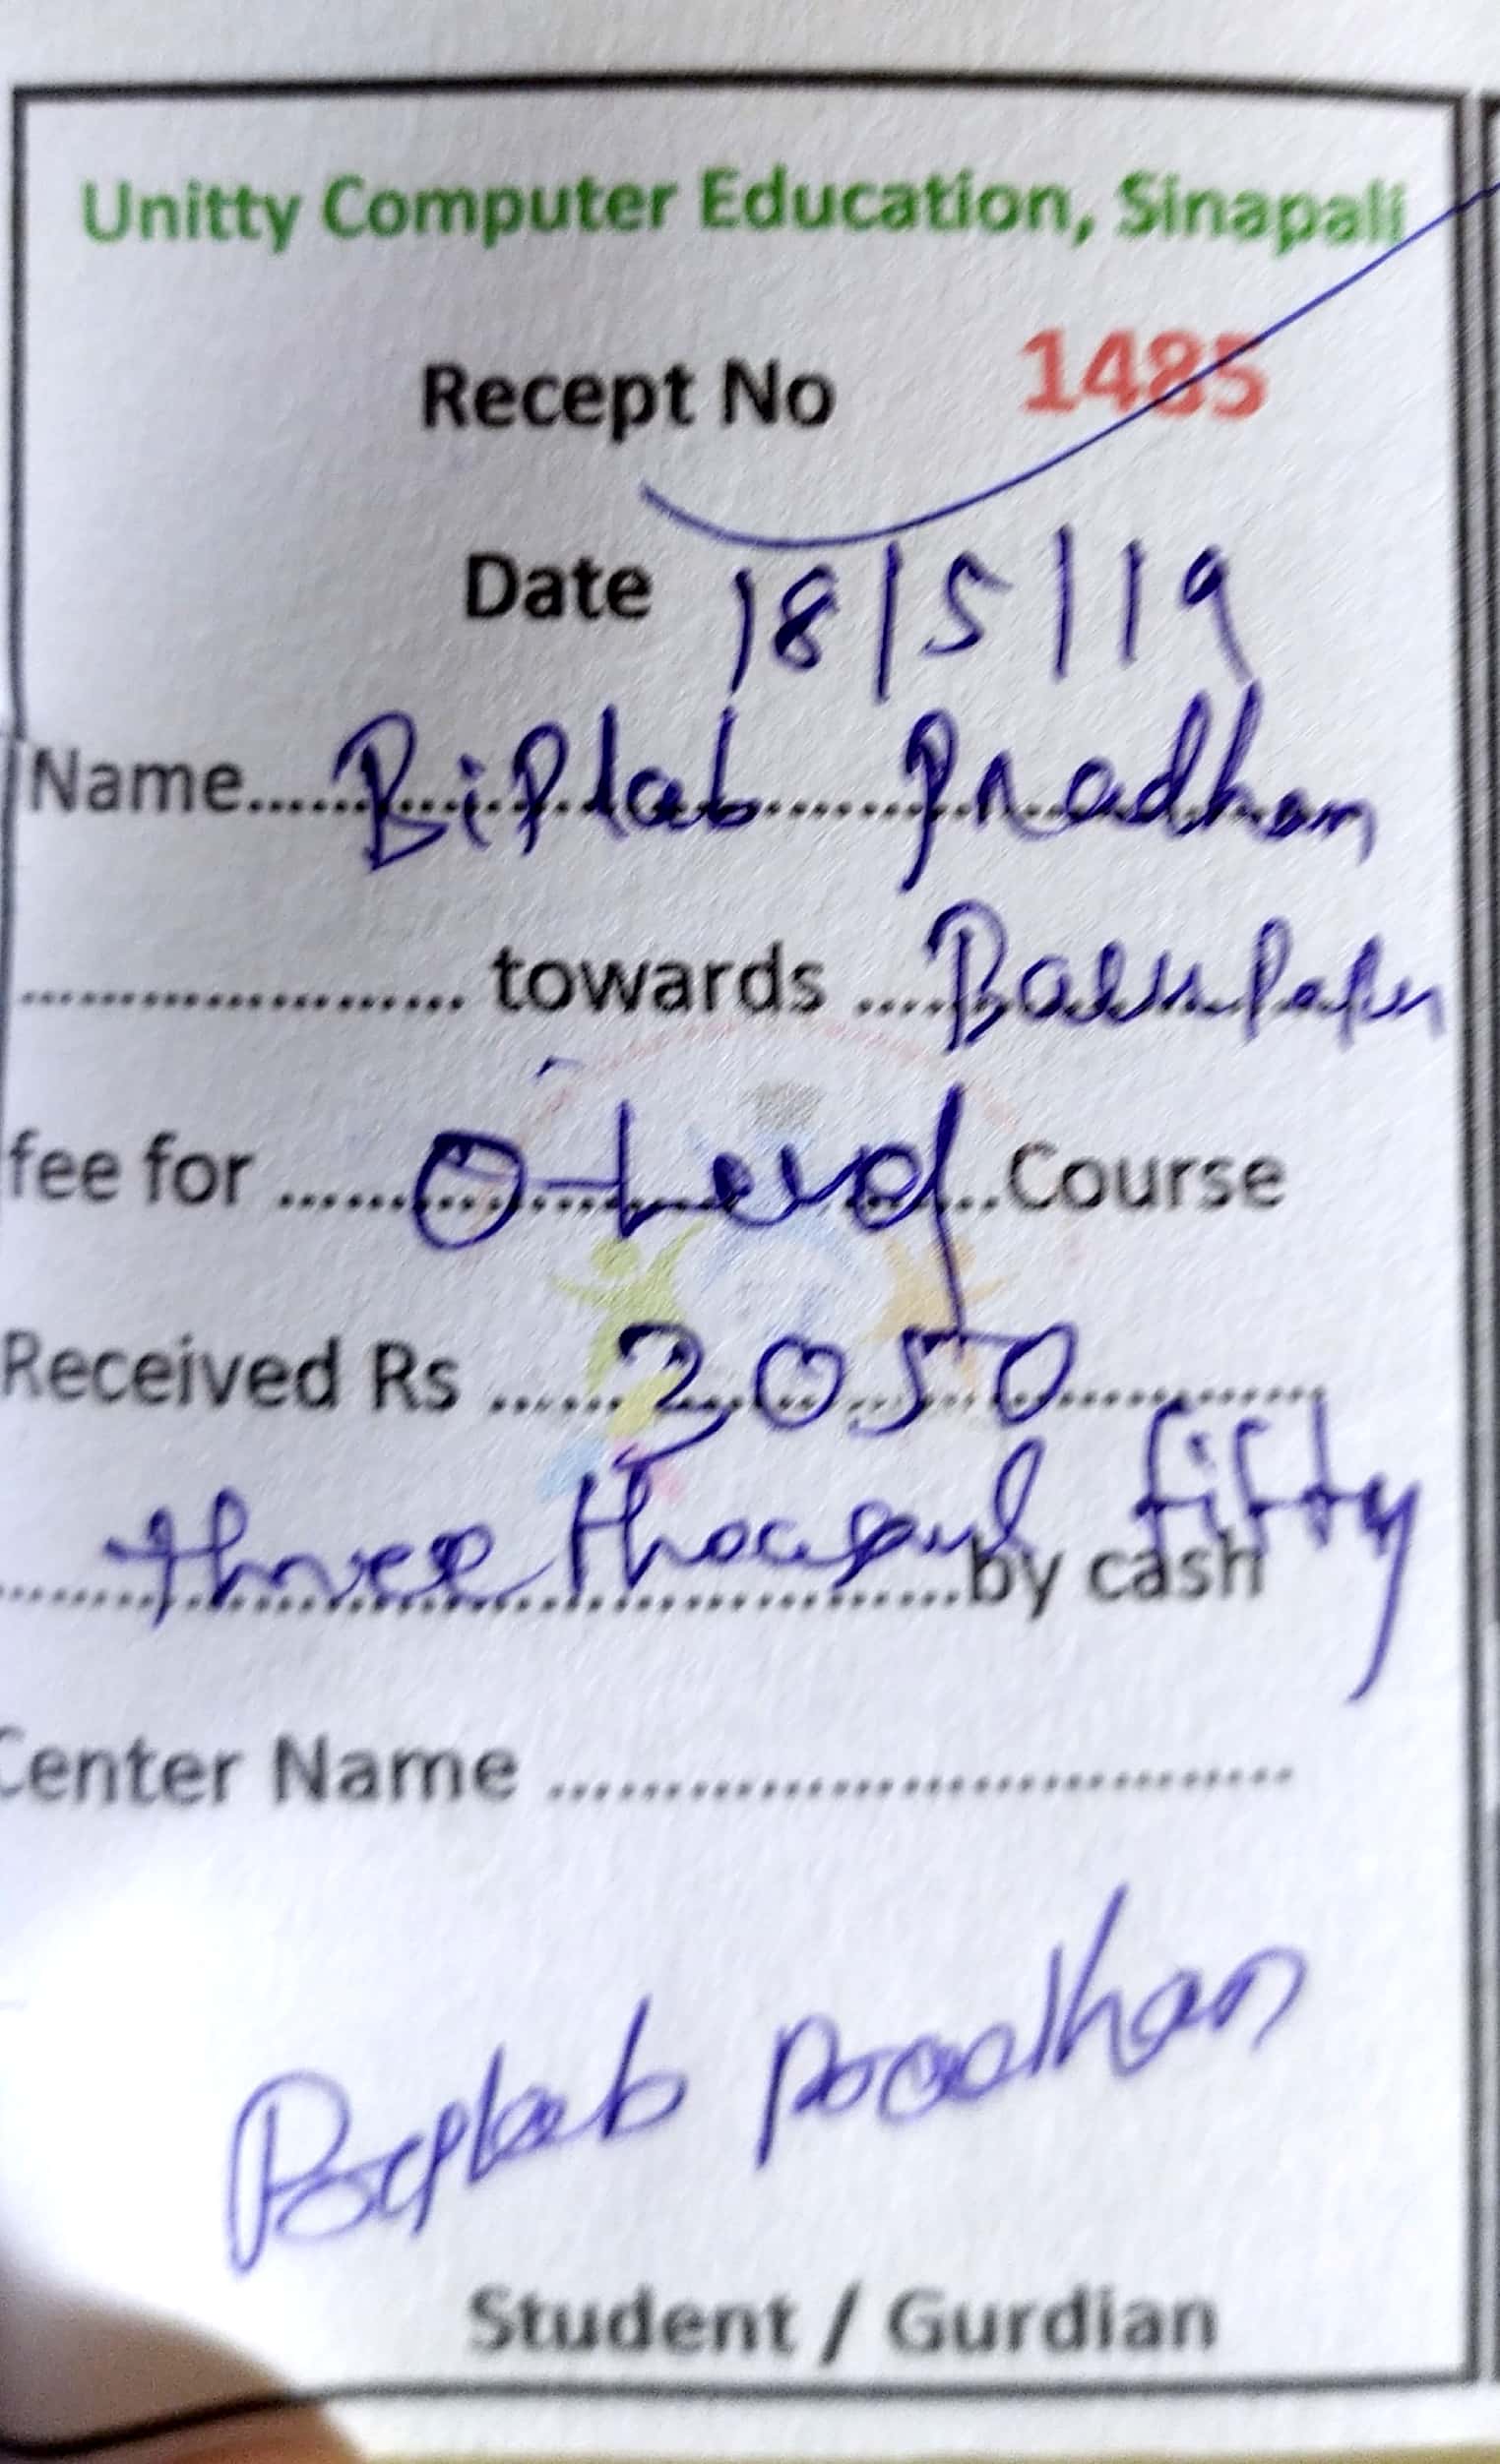 Unitty Computer Education, Sinapali
Recept No 1485
Date 18/5/19
Name.....Biplab Pradhan
..................... towards ....
fee for ......O-Level...Course
Received Rs ......3050..........
three thousand fifty by cash
Center Name ...............................
Biplab Pradhan
Student / Gurdian